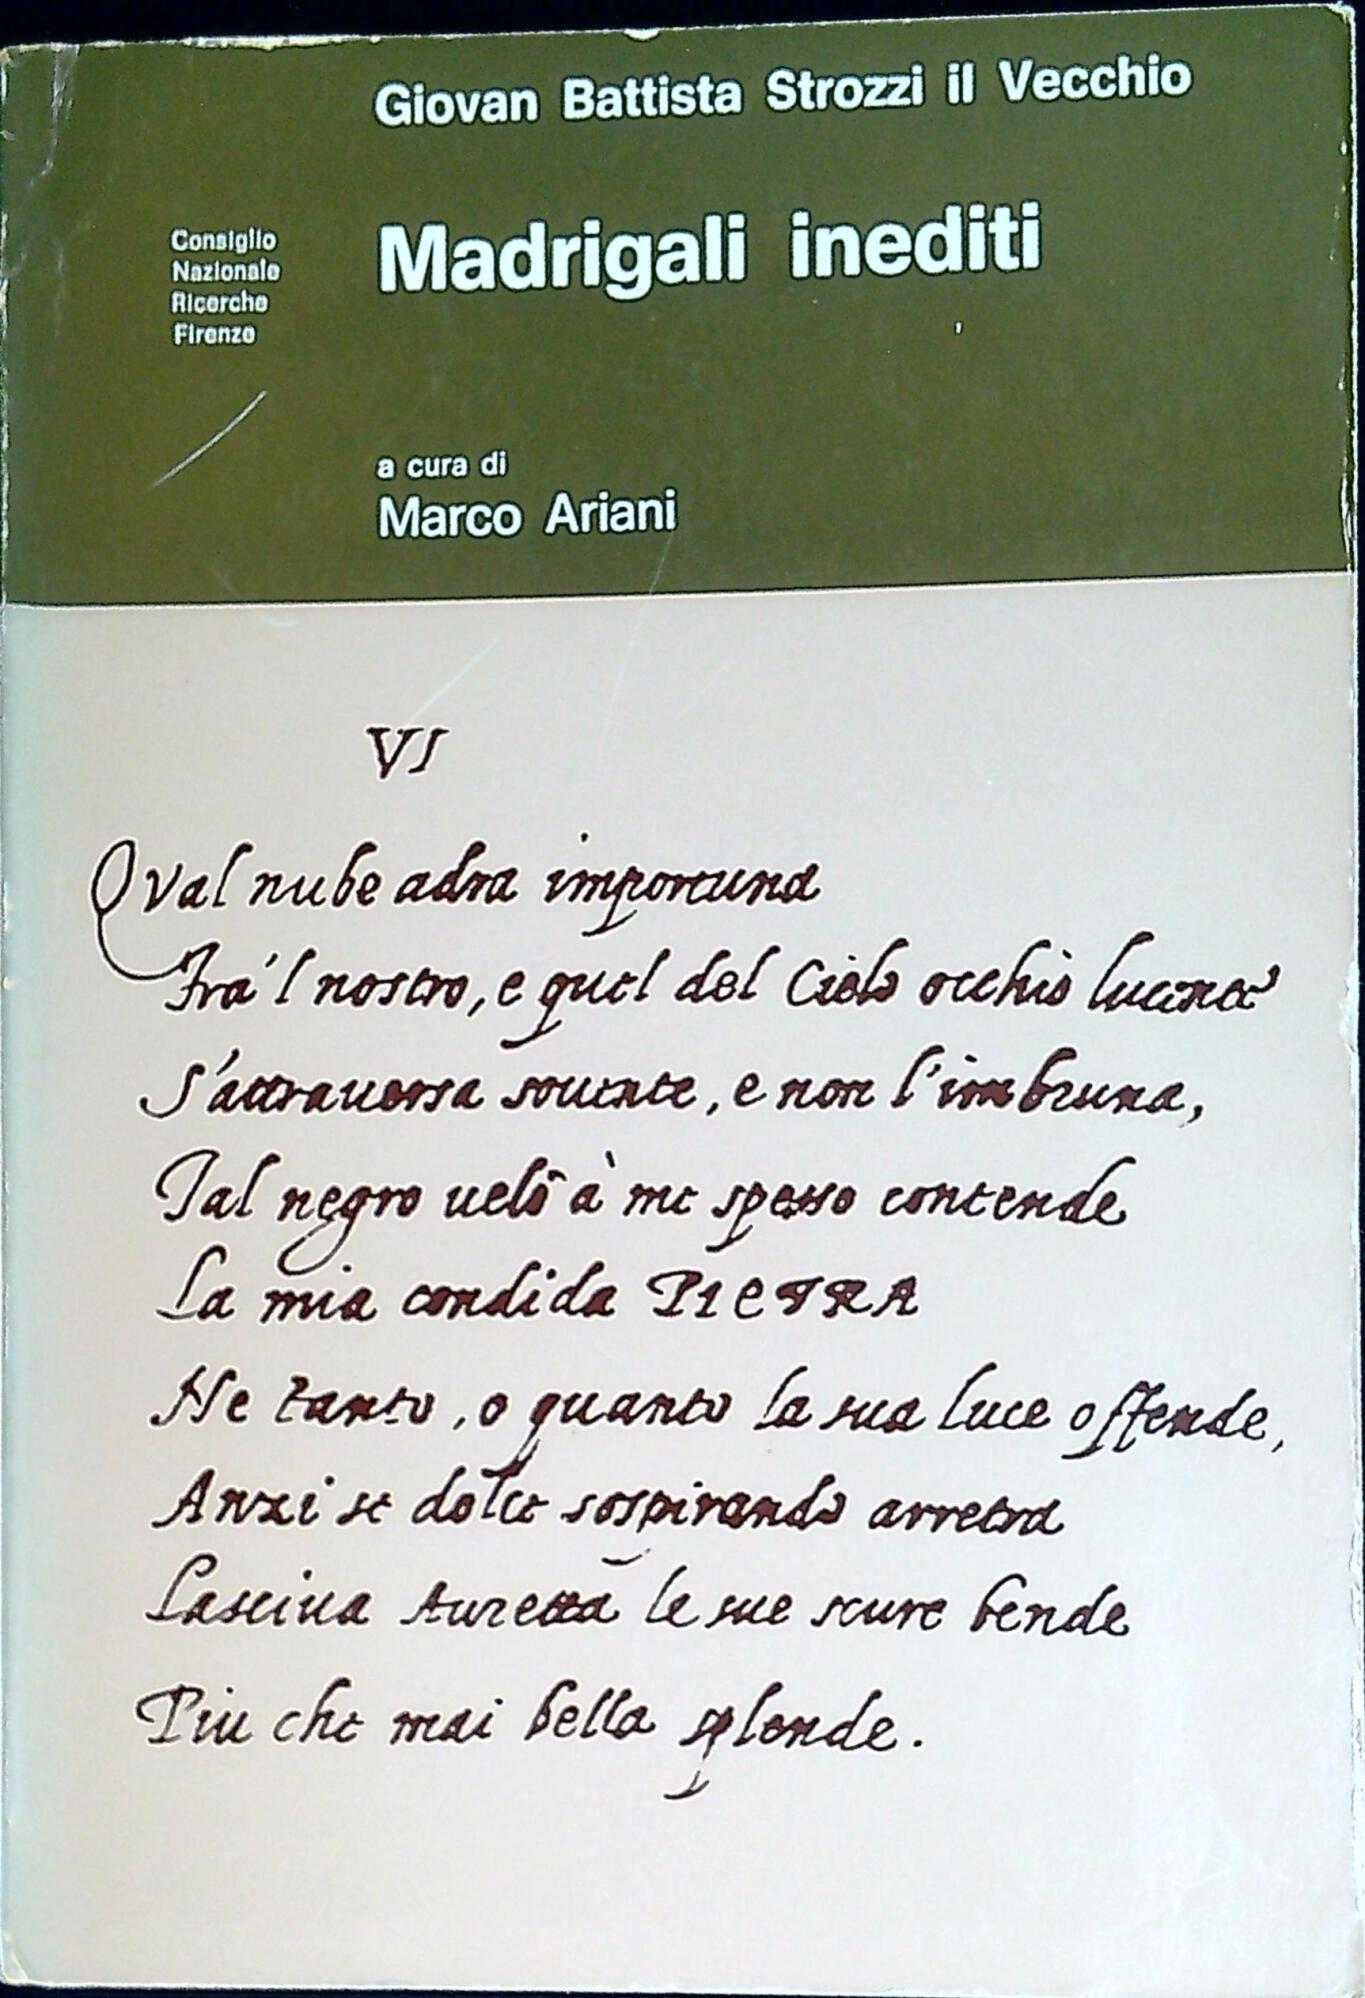 Giovan Battista Strozzi il Vecchio
Madrigali inediti
Consiglio
Nazionale
Ricerche
Firenze
a cura di
Marco Ariani
VI
Qval nube adra importuna
Fra'l nostro, e quel del Cielo occhio lucente
S'attrauersa souente, e non l'imbruna,
Tal negro uelo à me spesso contende
La mia condida PIETRA
Ne tanto, o quanto la sua luce offende,
Anzi se dolce sospirando arretra
Lasciua Auretta le sue scure bende
Piu che mai bella splende.